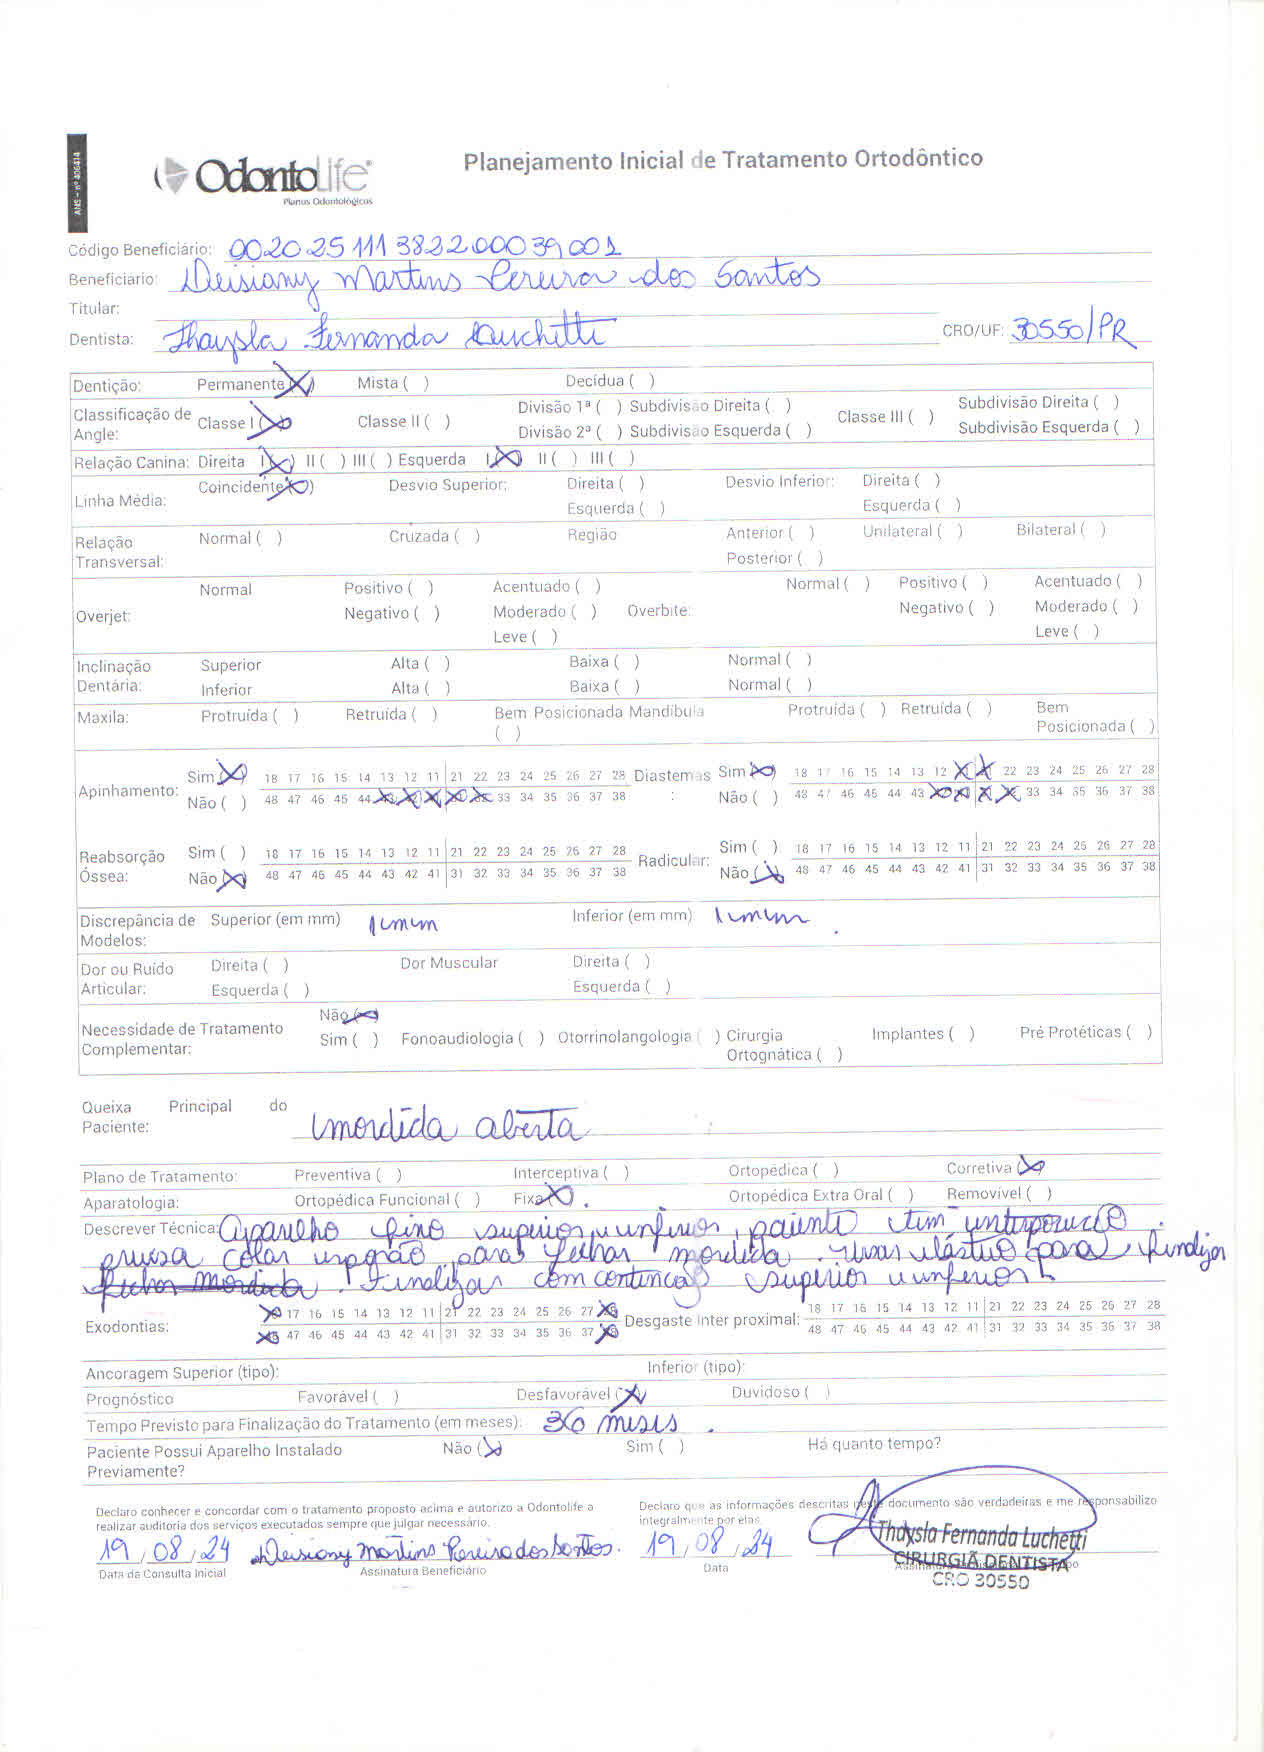 ANS - nº 406414
OdontoLife®
Planos Odontológicos
Planejamento Inicial de Tratamento Ortodôntico
Código Beneficiário: 00202511138220039001
Beneficiário: Deisiany Martins Pereira dos Santos
Titular:
Dentista: Thaysla Fernanda Luchetti CRO/UF: 30550/PR
Dentição: Permanente (X) Mista ( ) Decídua ( )
Classificação de Angle: Classe I (X) Classe II ( ) Divisão 1ª ( ) Subdivisão Direita ( ) Divisão 2ª ( ) Subdivisão Esquerda ( ) Classe III ( ) Subdivisão Direita ( ) Subdivisão Esquerda ( )
Relação Canina: Direita I (X) II ( ) III ( ) Esquerda I (X) II ( ) III ( )
Linha Média: Coincidente (X) Desvio Superior: Direita ( ) Esquerda ( ) Desvio Inferior: Direita ( ) Esquerda ( )
Relação Transversal: Normal ( ) Cruzada ( ) Região Anterior ( ) Posterior ( ) Unilateral ( ) Bilateral ( )
Overjet: Normal Positivo ( ) Negativo ( ) Acentuado ( ) Moderado ( ) Leve ( ) Overbite: Normal ( ) Positivo ( ) Negativo ( ) Acentuado ( ) Moderado ( ) Leve ( )
Inclinação Dentária: Superior Alta ( ) Baixa ( ) Normal ( )
Inferior Alta ( ) Baixa ( ) Normal ( )
Maxila: Protruída ( ) Retruída ( ) Bem Posicionada ( ) Mandíbula Protruída ( ) Retruída ( ) Bem Posicionada ( )
Apinhamento: Sim (X) 18 17 16 15 14 13 12 11 21 22 23 24 25 26 27 28 Diastemas: Sim (X) 18 17 16 15 14 13 12 X X 22 23 24 25 26 27 28
Não ( ) 48 47 46 45 44 X X X X X 33 34 35 36 37 38 Não ( ) 48 47 46 45 44 43 X X X X 33 34 35 36 37 38
Reabsorção Óssea: Sim ( ) 18 17 16 15 14 13 12 11 21 22 23 24 25 26 27 28 Radicular: Sim ( ) 18 17 16 15 14 13 12 11 21 22 23 24 25 26 27 28
Não (X) 48 47 46 45 44 43 42 41 31 32 33 34 35 36 37 38 Não (X) 48 47 46 45 44 43 42 41 31 32 33 34 35 36 37 38
Discrepância de Modelos: Superior (em mm) 1mm Inferior (em mm) 1mm
Dor ou Ruído Articular: Direita ( ) Esquerda ( ) Dor Muscular Direita ( ) Esquerda ( )
Necessidade de Tratamento Complementar: Não (X) Sim ( ) Fonoaudiologia ( ) Otorrinolangologia ( ) Cirurgia Ortognática ( ) Implantes ( ) Pré Protéticas ( )
Queixa Principal do Paciente: mordida aberta
Plano de Tratamento: Preventiva ( ) Interceptiva ( ) Ortopédica ( ) Corretiva (X)
Aparatologia: Ortopédica Funcional ( ) Fixa (X) Ortopédica Extra Oral ( ) Removível ( )
Descrever Técnica: Aparelho fixo superior e inferior, paciente tem
precisa colar para fechar mordida. usar elástico para finalizar
fechar mordida. Finalizar com contenção superior e inferior.
Exodontias: X 17 16 15 14 13 12 11 21 22 23 24 25 26 27 X Desgaste Inter proximal: 18 17 16 15 14 13 12 11 21 22 23 24 25 26 27 28
X 47 46 45 44 43 42 41 31 32 33 34 35 36 37 X 48 47 46 45 44 43 42 41 31 32 33 34 35 36 37 38
Ancoragem Superior (tipo): Inferior (tipo):
Prognóstico Favorável ( ) Desfavorável (X) Duvidoso ( )
Tempo Previsto para Finalização do Tratamento (em meses): 36 meses.
Paciente Possui Aparelho Instalado Previamente? Não (X) Sim ( ) Há quanto tempo?
Declaro conhecer e concordar com o tratamento proposto acima e autorizo a Odontolife a
realizar auditoria dos serviços executados sempre que julgar necessário.
Declaro que as informações descritas neste documento são verdadeiras e me responsabilizo
integralmente por elas.
19/08/24 Deisiany Martins Pereira dos Santos. 19/08/24
Data da Consulta Inicial Assinatura Beneficiário Data
Thaysla Fernanda Luchetti
CIRURGIÃ DENTISTA
CRO 30550